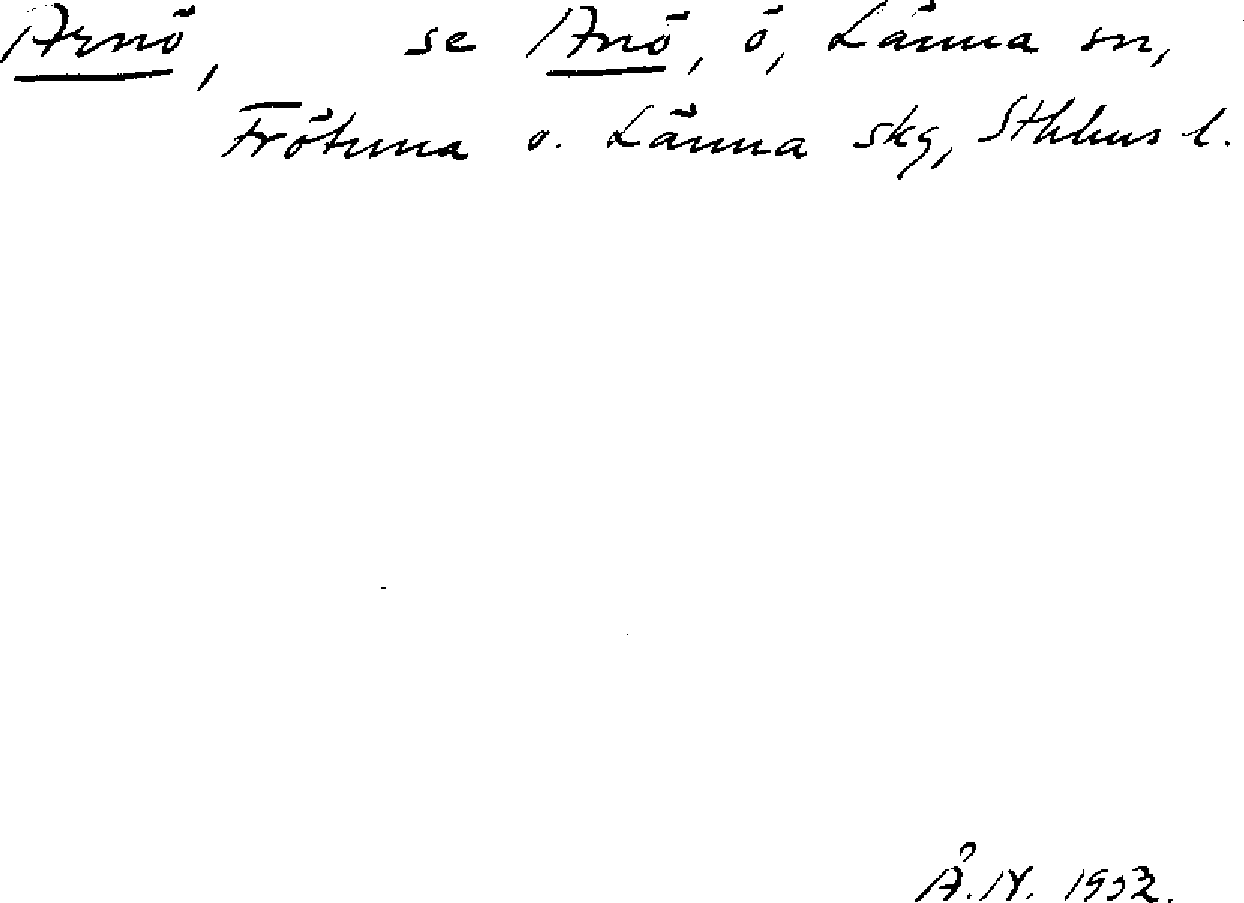 Arnö, se Anö, ö, Länna sn,
Frötuna o. Länna skg, Sthlms l.
Å.N. 1952.